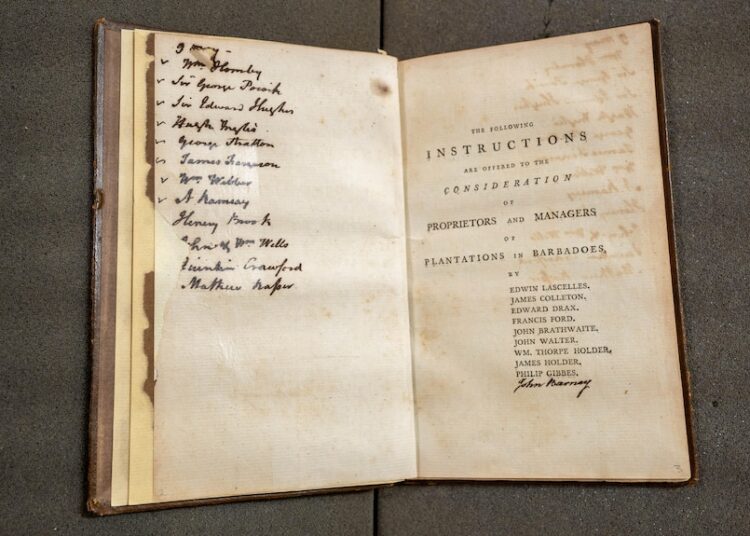 9 may
✓ Wm Hornby
✓ Sir George Pocock
✓ Sir Edward Hughes
✓ Hugh Inglis
✓ George Stratton
✓ James
✓ Wm Webber
✓ A Ramsay
Henry Brook
Wm Wells
Crawford
Mathew
THE FOLLOWING
INSTRUCTIONS
ARE OFFERED TO THE
CONSIDERATION
OF
PROPRIETORS AND MANAGERS
OF
PLANTATIONS IN BARBADOES,
BY
EDWIN LASCELLES,
JAMES COLLETON,
EDWARD DRAX,
FRANCIS FORD,
JOHN BRATHWAITE,
JOHN WALTER,
WM. THORPE HOLDER,
JAMES HOLDER,
PHILIP GIBBES,
John Barney
3